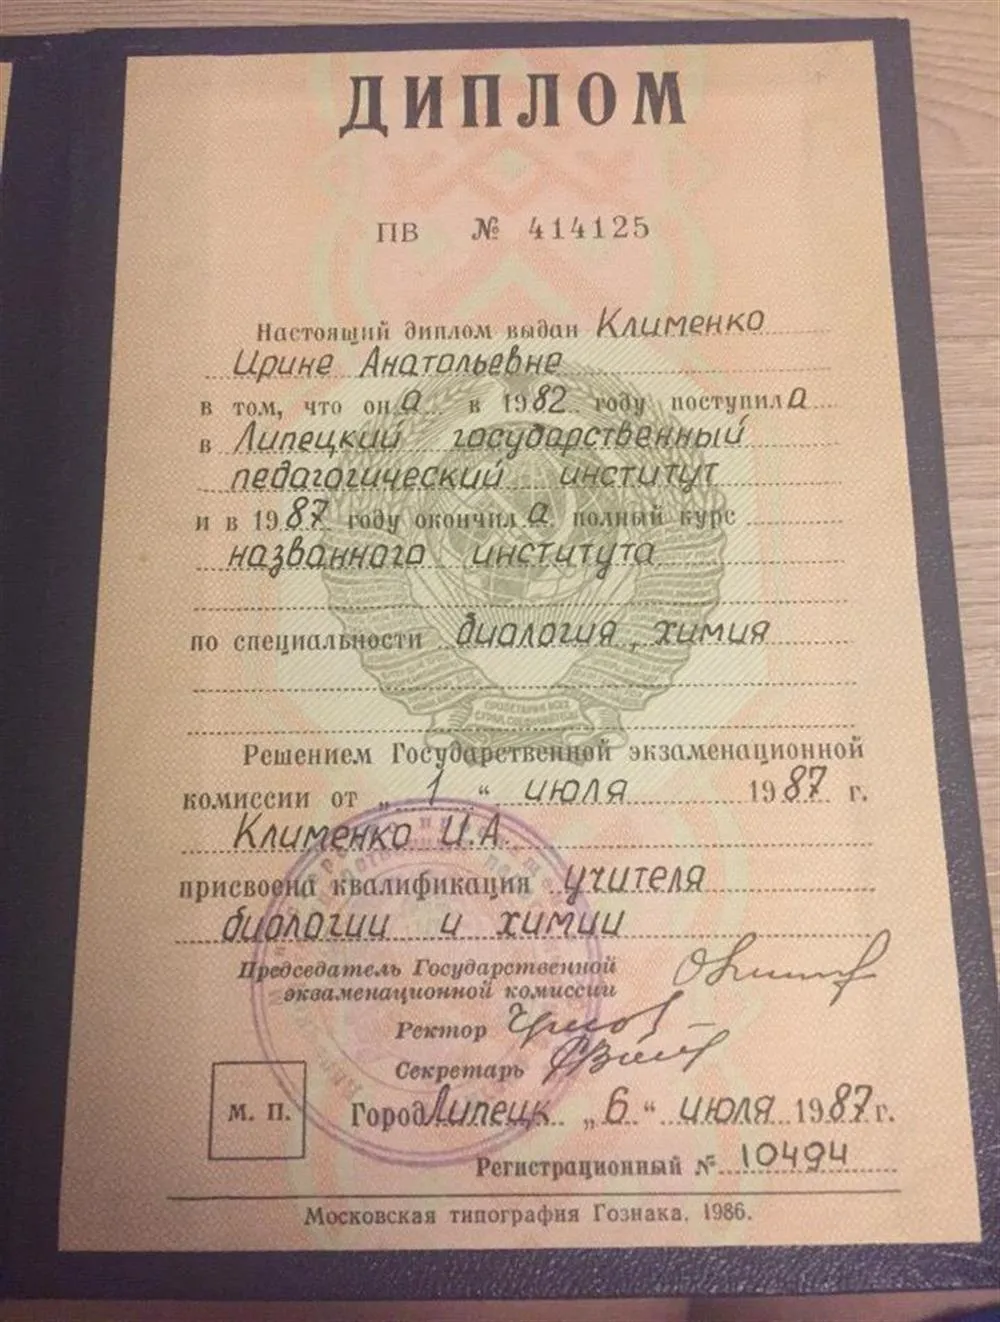 ДИПЛОМ
ПВ № 414125
Настоящий диплом выдан Клименко
Ирине Анатольевне
в том, что она в 1982 году поступила
в Липецкий государственный
педагогический институт
и в 1987 году окончила полный курс
названного института
по специальности биология, химия
ПРОЛЕТАРИИ ВСЕХ
СТРАН, СОЕДИНЯЙТЕСЬ!
Решением Государственной экзаменационной
комиссии от „ 1 “ июля 1987 г.
Клименко И.А.
присвоена квалификация учителя
биологии и химии
Председатель Государственной
экзаменационной комиссии
Ректор
Секретарь
М. П.
Город Липецк „ 6 “ июля 1987 г.
Регистрационный № 10494
Московская типография Гознака. 1986.